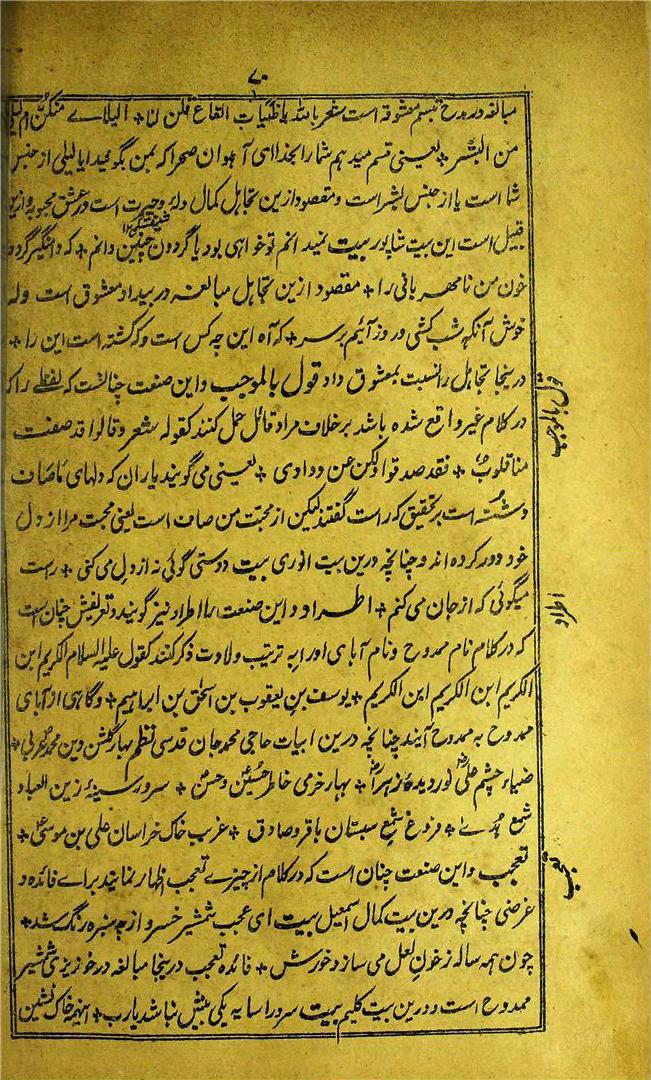 ۷۰
مبالغه در مدح تبسم معشوقه است شعر بالله یا ظبیات القاع قلن لنا ٭ الیلاے منکن ام لیلی
من البشر ٭ یعنی قسم میدهم شما را بخدا ای آهوان صحرا که بمن بگوئید ایا لیلی از جنس
شما است یا از جنس بشر است و مقصود ازین تجاهل کمال وله و حیرت است در عشق محبوبه و ازین
قبیل است این بیت شاپور بیت نمیدانم تو خواهی بود یا گردون چنین دانم ٭ که دامنگیر گردد
خون من نامهربانی را ٭ مقصود ازین تجاهل مبالغه در بیداد معشوق است وله
خوش آنکه شب کشی و روز آئیم بر سر ٭ که آه این چه کس است و که کشته است این را ٭
درینجا تجاهل را نسبت بمعشوق داد قول بالموجب و این صنعت چنانست که لفظے را که
در کلام غیر واقع شده باشد بر خلاف مراد قائل حمل کنند کقوله شعر و قالوا قد صفت
منا قلوبٌ ٭ نقد صدقوا ولکن عن ودادی ٭ یعنی می گویند یاران که دلهای ما صاف
و شسته است بر تحقیق که راست گفتند لیکن از محبّت من صاف است یعنی محبت مرا از دل
خود دور کرده اند و چنانچه درین بیت انوری بیت دوستی گوئی نه از دل می کنی ٭ راست
میگوئی که از جان می کنم ٭ اطراد و این صنعت را اطراد نیز گویند و تعریفش چنان است
که در کلام نام ممدوح و نام آبای او را به ترتیب ولادت ذکر کنند کقول علیه السلام الکریم ابن
الکریم ابن الکریم ابن الکریم ٭ یوسف بن یعقوب بن اسحٰق بن ابراهیم ٭ و گاهی از آبای
ممدوح به ممدوح آیند چنانچه درین ابیات حاجی محمد جان قدسی نظم بهار گلشن دین محمد عربی ٭
ضیاء چشم علی نور دیدۀ زهرا ٭ بهار خرمی خاطر حسین و حسن ٭ سرور سینۀ زین العباد
شمع هدےٰ ٭ فروغ شمع شبستان باقر و صادق ٭ غریب خاک خراسان علی بن موسیٰ ٭
تعجب و این صنعت چنان است که در کلام از چیزے تعجب اظهار نمایند براے فائده و
غرضی چنانچه درین بیت کمال اسمعیل بیت ای عجب شمشیر خسرو از چه سبزه رنگ شد ٭
چون همه ساله ز خون لعل می سازد خورش ٭ فائده تعجب درینجا مبالغه در خونریزی شمشیر
ممدوح است و درین بیت کلیم بیت سرو را سایه یکی بیش نباشد یارب ٭ اینهمه خاک نشین
قول بالموجب
اطراد
تعجب